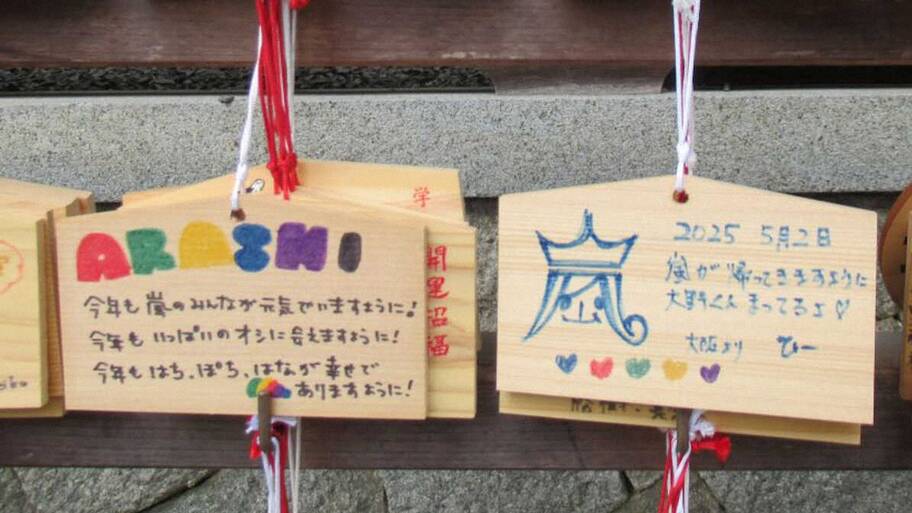 ARASHI
今年も嵐のみんなが元気でいますように!
今年もいっぱいのオシに会えますように!
今年もはち、ぽち、はなが幸せで
ありますように!
学
開運招福
2025 5月2日
嵐が帰ってきますように
大野くんまってるよ♡
大阪より ひー